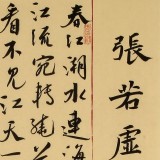 張若虛
春江潮水連海
江流宛轉繞
看不見江天一